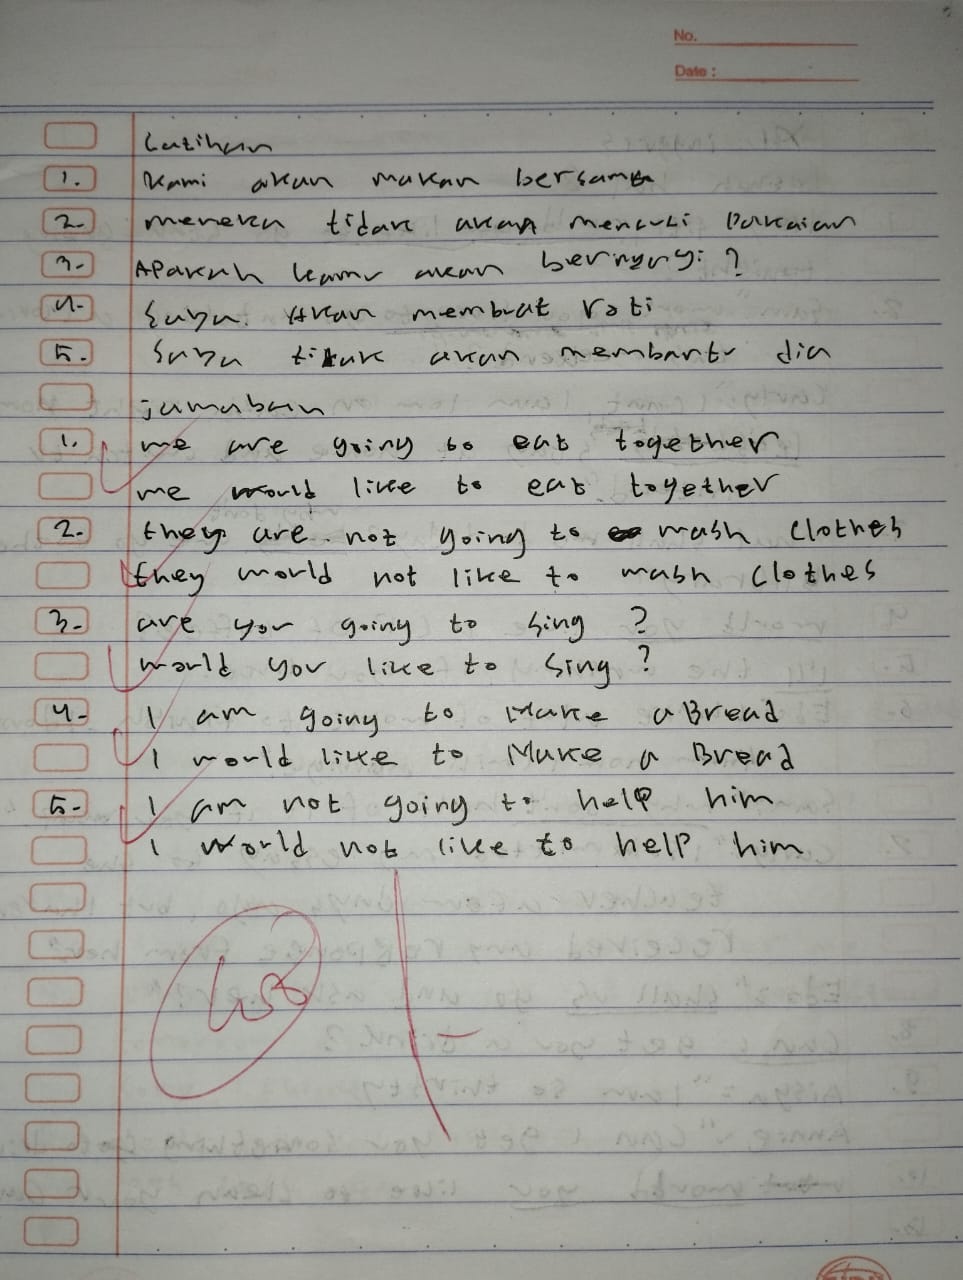 No.
Date :
Latihan
1. Kami akan makan bersama
2. mereka tidak akan mencuci Pakaian
3. APakah kamu akan bernyanyi ?
4. Saya akan membuat roti
5. Saya tidak akan membantu dia
jawaban
1. we are going to eat together
we would like to eat together
2. they are not going to wash clothes
they would not like to wash clothes
3. are you going to sing ?
would you like to sing ?
4. I am going to Make a Bread
I would like to Make a Bread
5. I am not going to help him
I would not like to help him